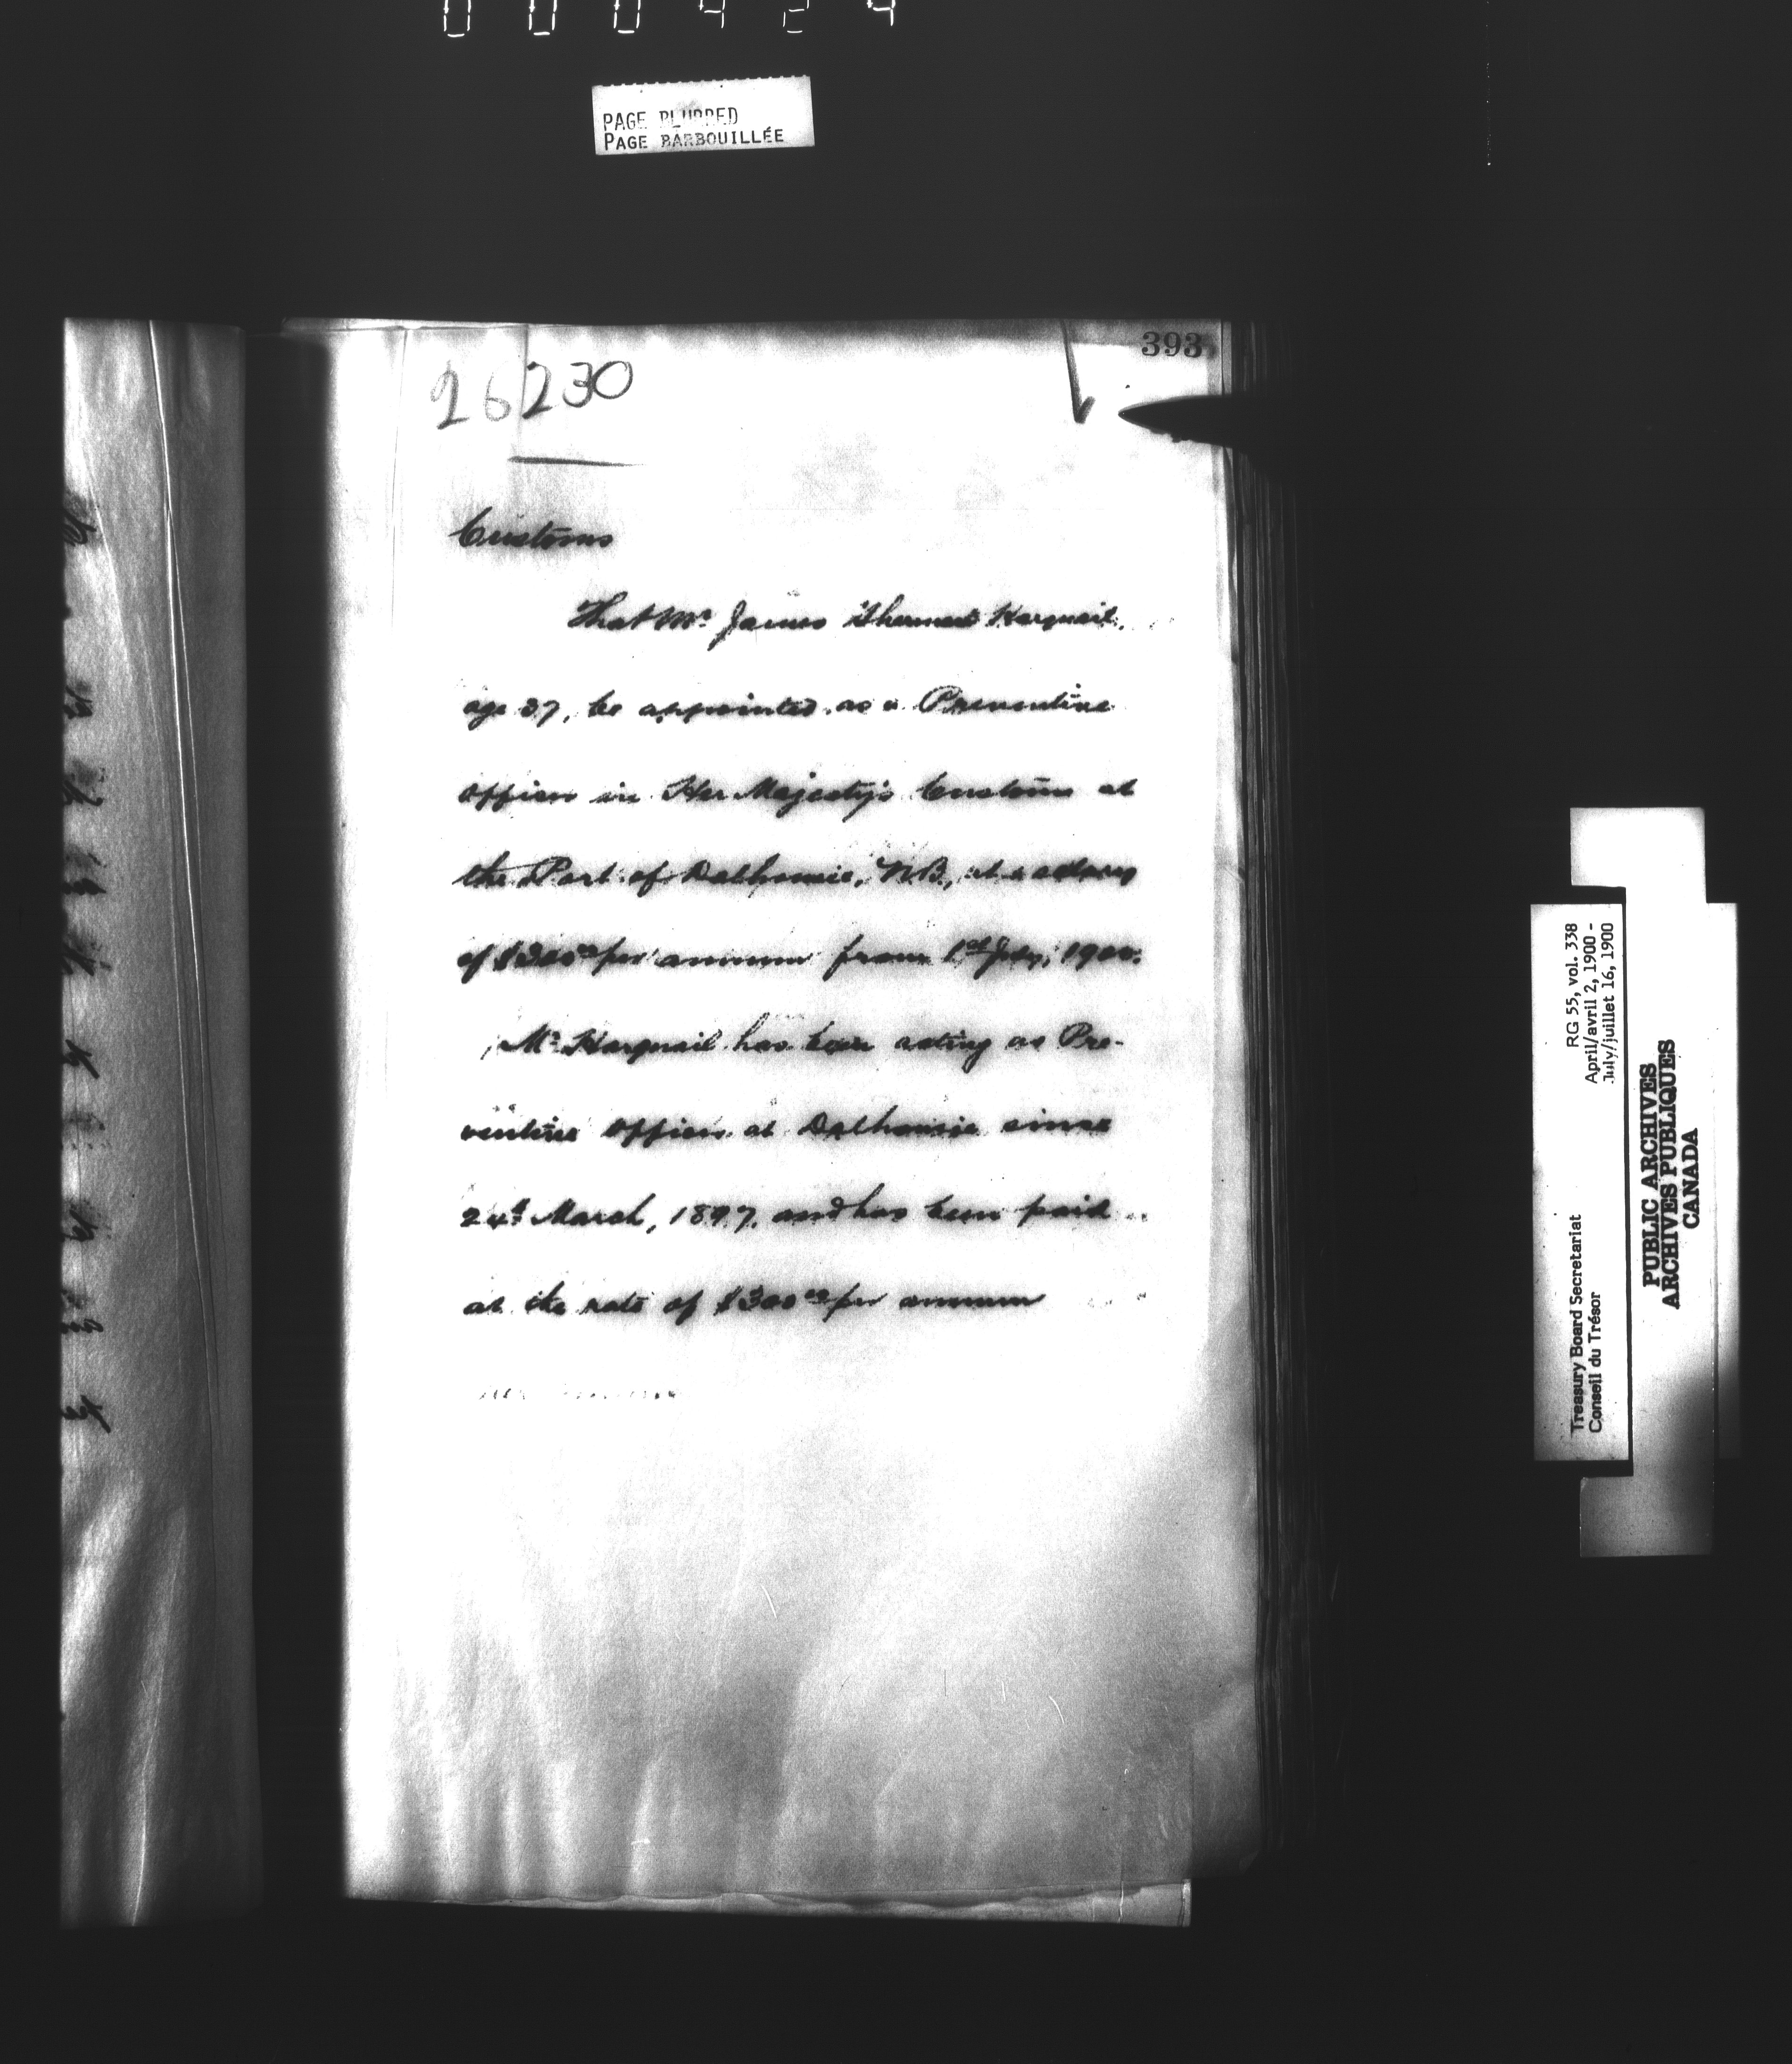 000424
PAGE BLURRED
PAGE BARBOUILLÉE
393
26230
Customs
That Mr. James Harquail,
age 37, be appointed as a Preventive
Officer in Her Majesty's Customs at
the Port of Dalhousie, N.B., at a salary
of $300.00 per annum from 1st July, 1900.
Mr. Harquail has been acting as Pre-
ventive Officer at Dalhousie since
24th March, 1897, and has been paid
at the rate of $300.00 per annum
RG 55, vol. 338
April/avril 2, 1900 -
July/juillet 16, 1900
Treasury Board Secretariat
Conseil du Trésor
PUBLIC ARCHIVES
ARCHIVES PUBLIQUES
CANADA